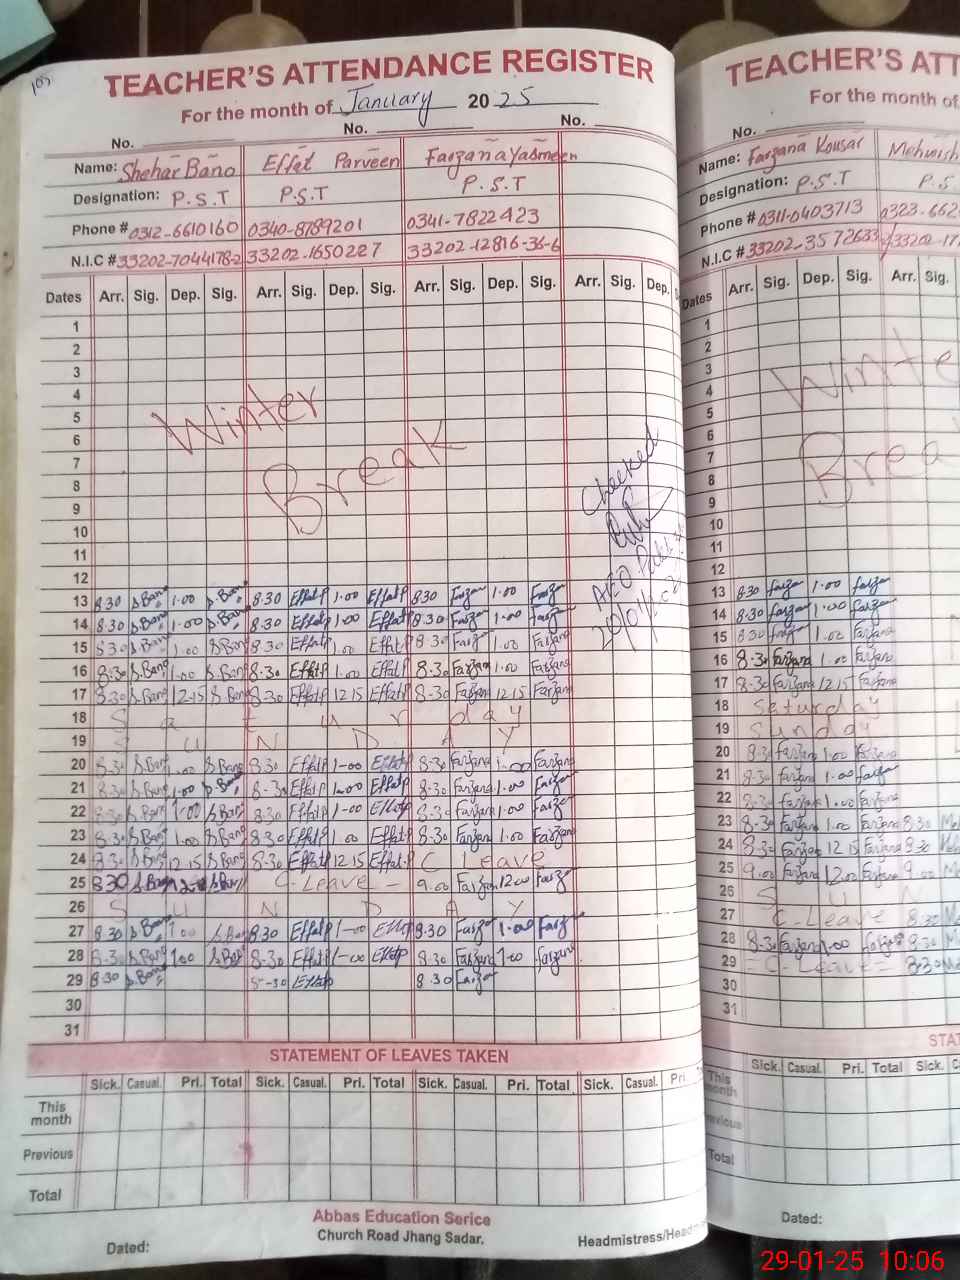 TEACHER'S ATTENDANCE REGISTER
For the month of January 2025
No. No. No.
Name: Shehar Bano Effat Parveen Farzana Yasmeen
Designation: P.S.T P.S.T P.S.T
Phone # 0312-6610160 0340-8789201 0341-7822423
N.I.C # 33202-7044178-2 33202-1650227 33202-12816-36-6
Dates Arr. Sig. Dep. Sig. Arr. Sig. Dep. Sig. Arr. Sig. Dep. Sig. Arr. Sig. Dep.
1
2
3
4
5
6
7
8
9
10
11
12
Winter
Break
Checked
AEO
13 8.30 S.Bano 1.00 S.Bano 8.30 Effat P 1.00 Effat P 8.30 Farzan 1.00 Farzan
14 8.30 S.Bano 1.00 S.Bano 8.30 Effat P 1.00 Effat P 8.30 Farzan 1.00 Farzan
15 8.30 S.Bano 1.00 S.Bano 8.30 Effat P 1.00 Effat P 8.30 Farzan 1.00 Farzan
16 8.30 S.Bano 1.00 S.Bano 8.30 Effat P 1.00 Effat P 8.30 Farzana 1.00 Farzan
17 8.30 S.Bano 12.15 S.Bano 8.30 Effat P 12 15 Effat P 8.30 Farzana 12 15 Farzan
18 Saturday
19 SUNDAY
20 8.30 S.Bano 1.00 S.Bano 8.30 Effat P 1-00 Effat P 8.30 Farzana 1.00 Farzan
21 8.30 S.Bano 1.00 S.Bano 8.30 Effat P 1.00 Effat P 8.30 Farzana 1.00 Farzan
22 8.30 S.Bano 1.00 S.Bano 8.30 Effat P 1-00 Effat P 8.30 Farzana 1.00 Farzan
23 8.30 S.Bano 1.00 S.Bano 8.30 Effat P 1.00 Effat P 8.30 Farzana 1.00 Farzan
24 8.30 S.Bano 12.15 S.Bano 8.30 Effat P 12 15 Effat P C Leave
25 8.30 S.Bano S.Bano C-Leave - 9.00 Farzan 12.00 Farzan
26 SUNDAY
27 8.30 S.Bano 1.00 S.Bano 8.30 Effat P 1-00 Effat P 8.30 Farzan 1.00 Farzan
28 8.30 S.Bano 1.00 S.Bano 8.30 Effat P 1-00 Effat P 8.30 Farzana 1.00 Farzana
29 8.30 S.Bano 8-30 Effat P 8.30 Farzan
30
31
STATEMENT OF LEAVES TAKEN
Sick. Casual. Pri. Total Sick. Casual. Pri. Total Sick. Casual. Pri. Total Sick. Casual. Pri.
This month
Previous
Total
Abbas Education Serice
Church Road Jhang Sadar.
Dated: Headmistress/Head
TEACHER'S ATT
For the month of
No.
Name: Farzana Kousar Mehwish
Designation: P.S.T P.S.
Phone # 0311-0403713 0323-662
N.I.C # 33202-3572633 33202-17
Dates Arr. Sig. Dep. Sig. Arr.
1
2
3
4
5
6
7
8
9
10
11
12
Winte
Brea
13 8.30 farzan 1.00 farzan
14 8.30 farzan 1.00 Farzana
15 8.30 farzan 1.00 Farzana
16 8.30 Farzana 1.00 Farzana
17 8.30 Farzana 12 15 Farzana
18 Saturday
19 Sunday
20 8.30 farzana 1.00 Farzana
21 8.30 farzana 1.00 farzan
22 8.30 farzana 1.00 Farzana
23 8.30 Farzana 1.00 Farzana 8.30
24 8.30 Farzana 12 15 Farzana 8.30
25 9.00 Farzana 12.00 Farzana 9.00
26 SUN
27 C-Leave 8.30
28 8.30 Farzana 1.00 Farzana 8.30
29 = C-Leave = 8.30
30
31
STAT
Sick. Casual. Pri. Total Sick. C
This month
Previous
Total
Dated:
29-01-25 10:06